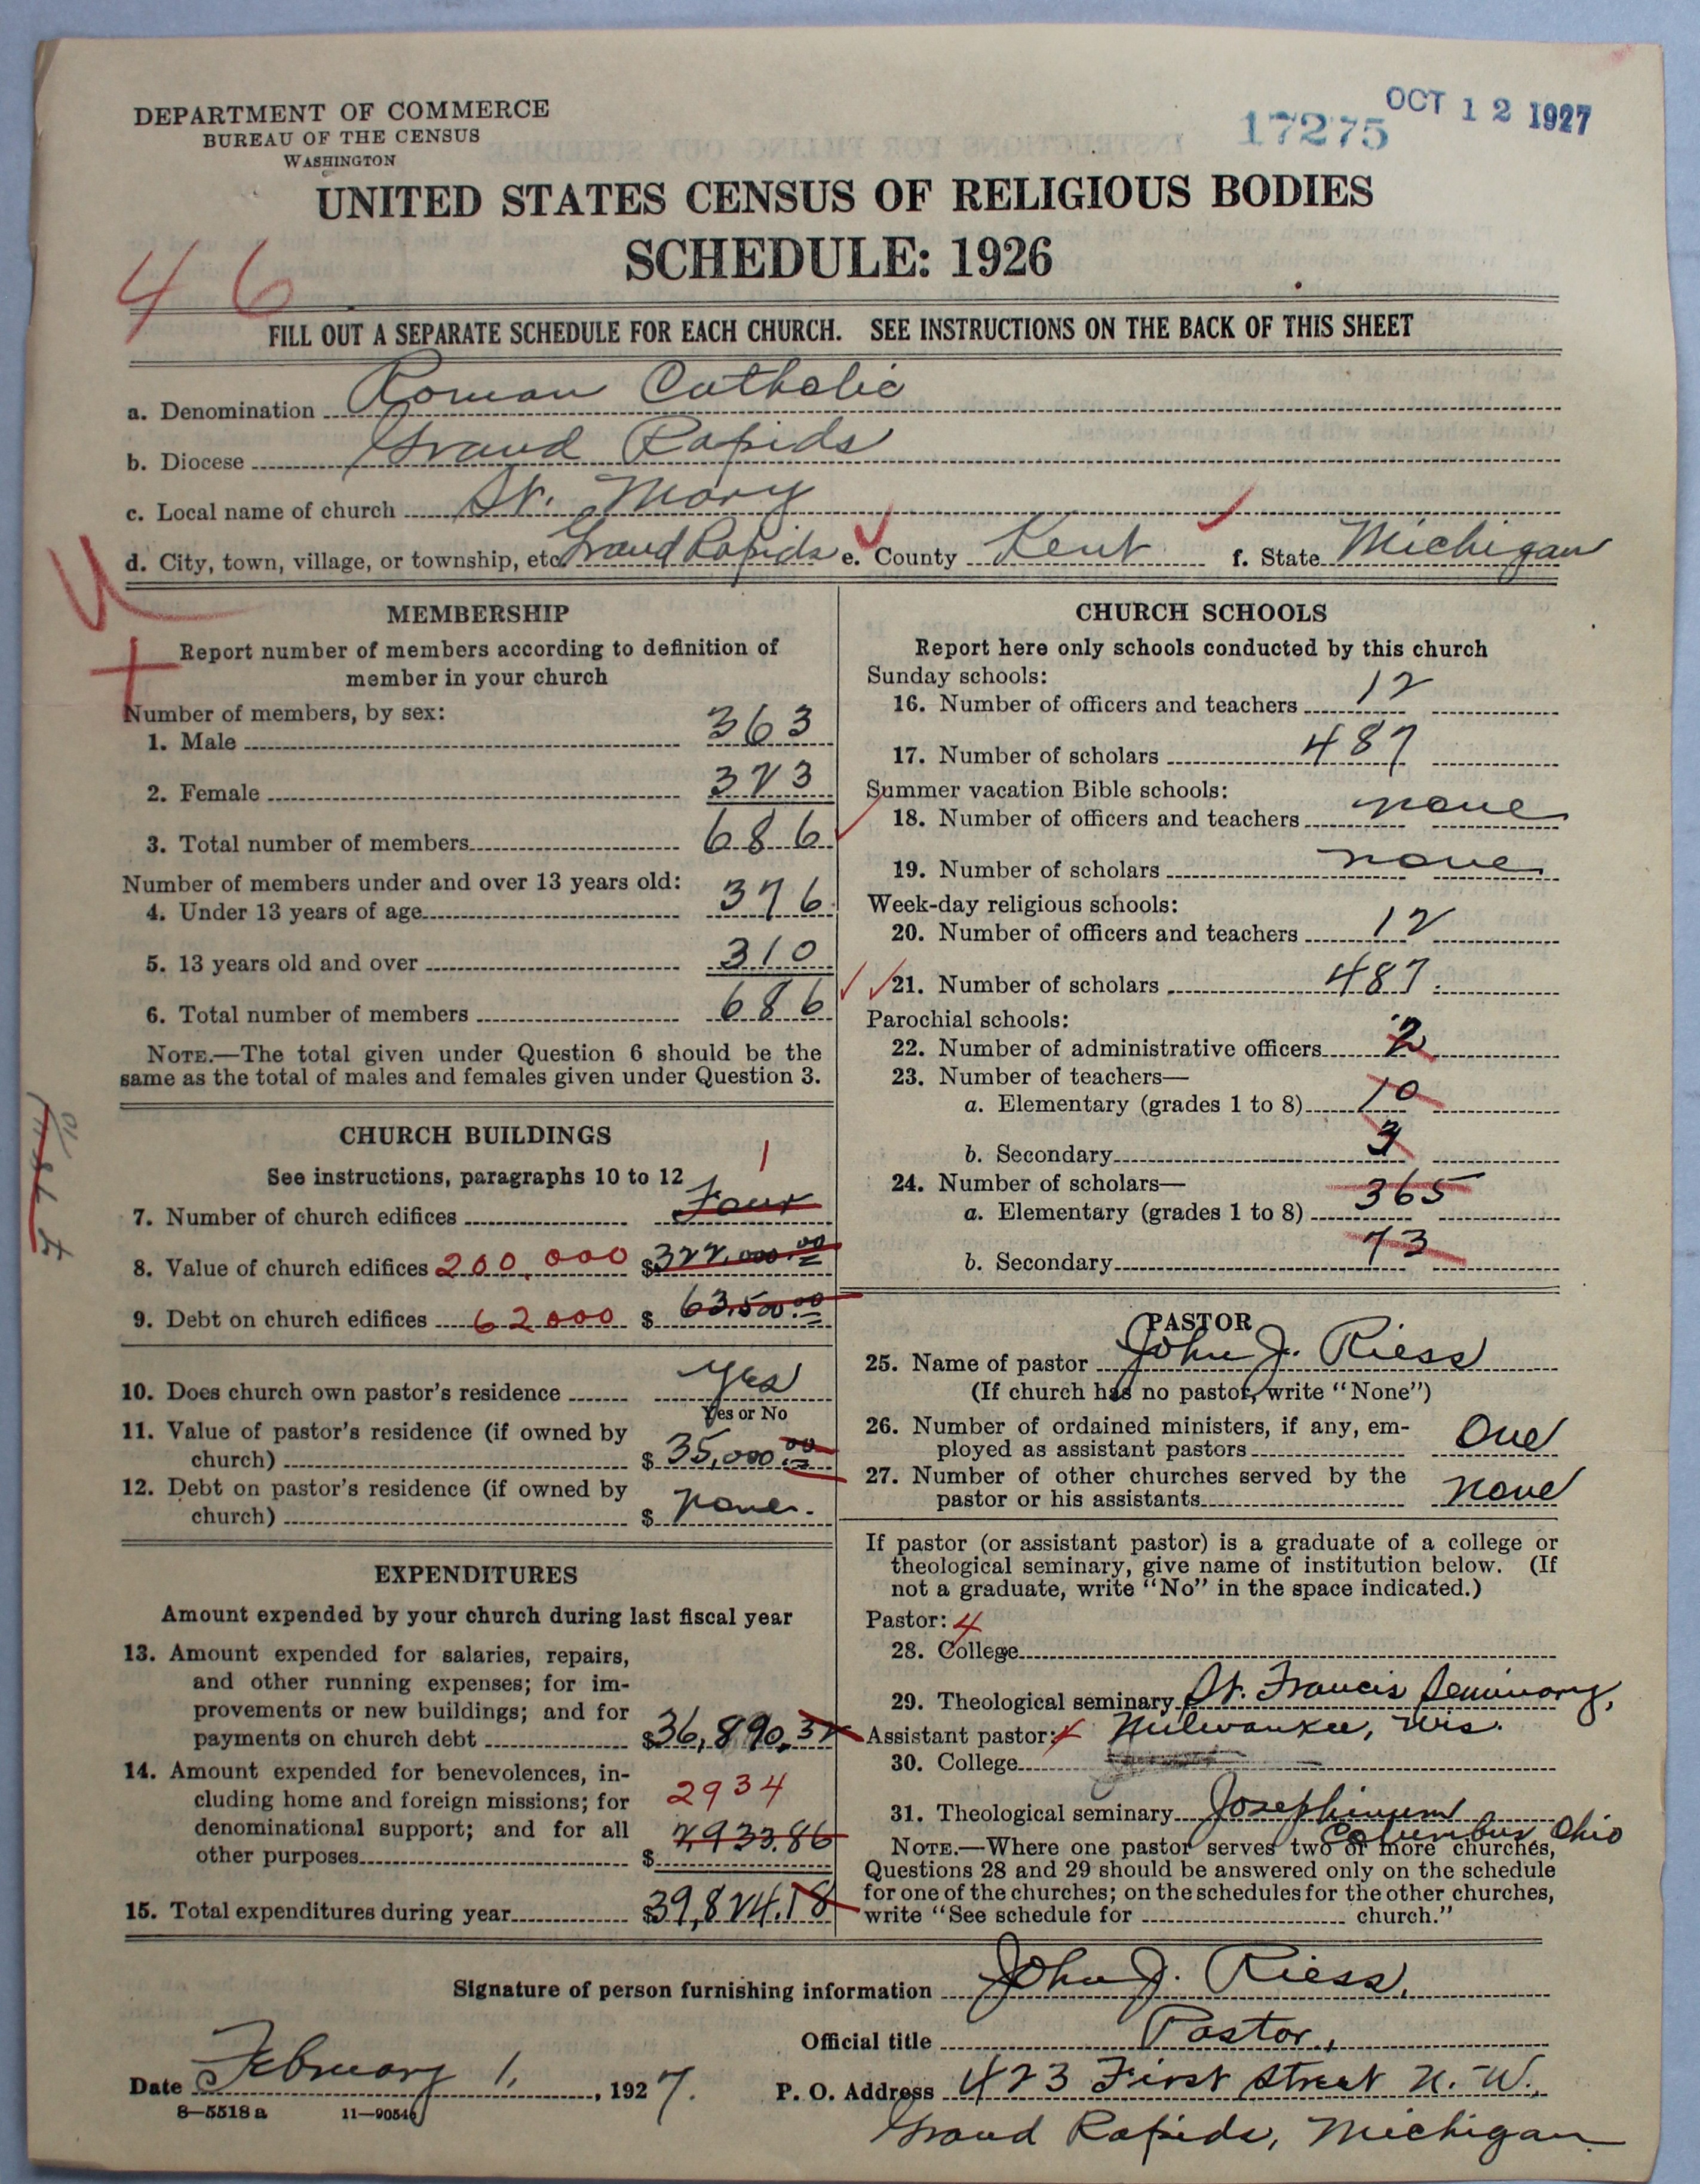 OCT 12 1927
17275
DEPARTMENT OF COMMERCE
BUREAU OF THE CENSUS
WASHINGTON
UNITED STATES CENSUS OF RELIGIOUS BODIES
SCHEDULE: 1926
46
FILL OUT A SEPARATE SCHEDULE FOR EACH CHURCH. SEE INSTRUCTIONS ON THE BACK OF THIS SHEET
a. Denomination Roman Catholic
b. Diocese Grand Rapids
c. Local name of church St. Mary
d. City, town, village, or township, etc. Grand Rapids e. County Kent f. State Michigan
MEMBERSHIP
Report number of members according to definition of
member in your church
Number of members, by sex:
1. Male 363
2. Female 323
3. Total number of members 686
Number of members under and over 13 years old:
4. Under 13 years of age 376
5. 13 years old and over 310
6. Total number of members 686
NOTE.—The total given under Question 6 should be the
same as the total of males and females given under Question 3.
CHURCH BUILDINGS
See instructions, paragraphs 10 to 12 1
7. Number of church edifices Four
8. Value of church edifices 200,000 $322,000.00
9. Debt on church edifices 62000 $ 63,500.00
10. Does church own pastor's residence Yes
Yes or No
11. Value of pastor's residence (if owned by
church) $ 35,000.00
12. Debt on pastor's residence (if owned by
church) $ none.
EXPENDITURES
Amount expended by your church during last fiscal year
13. Amount expended for salaries, repairs,
and other running expenses; for im-
provements or new buildings; and for
payments on church debt $36,890.32
14. Amount expended for benevolences, in-
cluding home and foreign missions; for 2934
denominational support; and for all 2933.86
other purposes $
15. Total expenditures during year $39,824.18
CHURCH SCHOOLS
Report here only schools conducted by this church
Sunday schools:
16. Number of officers and teachers 12
17. Number of scholars 487
Summer vacation Bible schools:
18. Number of officers and teachers none
19. Number of scholars none
Week-day religious schools:
20. Number of officers and teachers 12
21. Number of scholars 487.
Parochial schools:
22. Number of administrative officers 2
23. Number of teachers—
a. Elementary (grades 1 to 8) 10
b. Secondary 3
24. Number of scholars—
a. Elementary (grades 1 to 8) 365
b. Secondary 73
PASTOR
25. Name of pastor John J. Riess
(If church has no pastor, write "None")
26. Number of ordained ministers, if any, em-
ployed as assistant pastors One
27. Number of other churches served by the
pastor or his assistants none
If pastor (or assistant pastor) is a graduate of a college or
theological seminary, give name of institution below. (If
not a graduate, write "No" in the space indicated.)
Pastor: 4
28. College
29. Theological seminary St. Francis Seminary,
Assistant pastor: Milwaukee, Wis.
30. College
31. Theological seminary Josephinum
Columbus Ohio
NOTE.—Where one pastor serves two or more churches,
Questions 28 and 29 should be answered only on the schedule
for one of the churches; on the schedules for the other churches,
write "See schedule for church."
Signature of person furnishing information John J. Riess.
Official title Pastor.,
Date February 1, 1927. P. O. Address 423 First Street N. W.,
8—5518 a 11—90546 Grand Rapids, Michigan